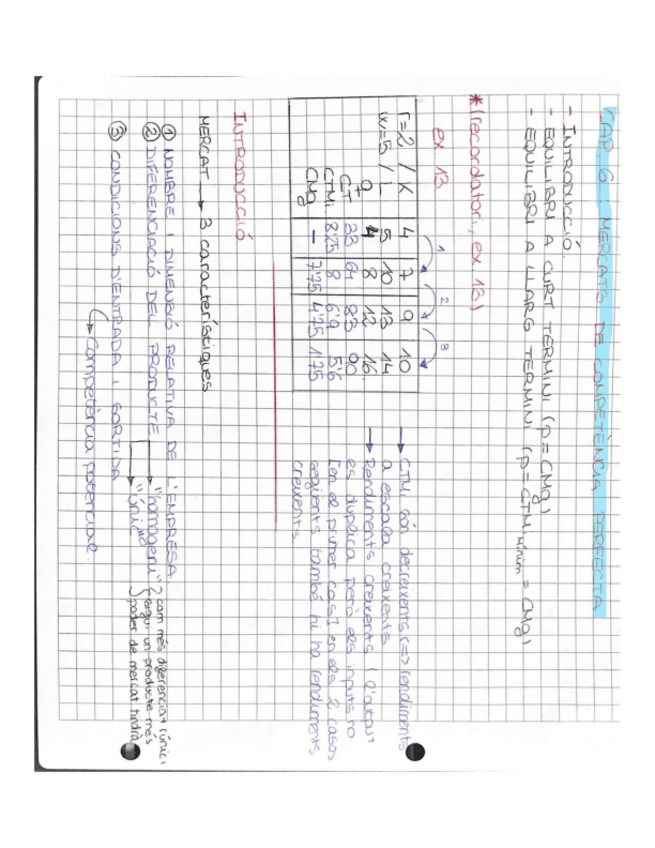 CAP. 6 : MERCATS DE COMPETÈNCIA PERFECTA
- INTRODUCCIÓ
- EQUILIBRI A CURT TERMINI (p = CMg)
- EQUILIBRI A LLARG TERMINI (p = CTMi mínim = CMg)
* (recordatori, ex 13)
ex 13
1 2 3
r=2 / K 4 7 9 10
w=5 / L 5 10 13 14
q 4 8 12 16
CT 33 64 83 90
CTMi 8'25 8 6'9 5'6
CMg - 7'75 4'75 1'75
→ CTMi són decreixents (=> rendiments
a escala creixents
→ Rendiments creixents (l'output
es duplica però els inputs no
[en el primer cas] en els 2 casos
següents també hi ha rendiments
creixents.
INTRODUCCIÓ
MERCAT → 3 característiques
① NOMBRE I DIMENSIÓ RELATIVA DE L'EMPRESA
② DIFERENCIACIÓ DEL PRODUCTE → "homogeni"
→ "únic"
com més diferenciat (únic)
sigui un producte més
poder de mercat tindrà
③ CONDICIONS D'ENTRADA I SORTIDA
↳ Competència potencial.